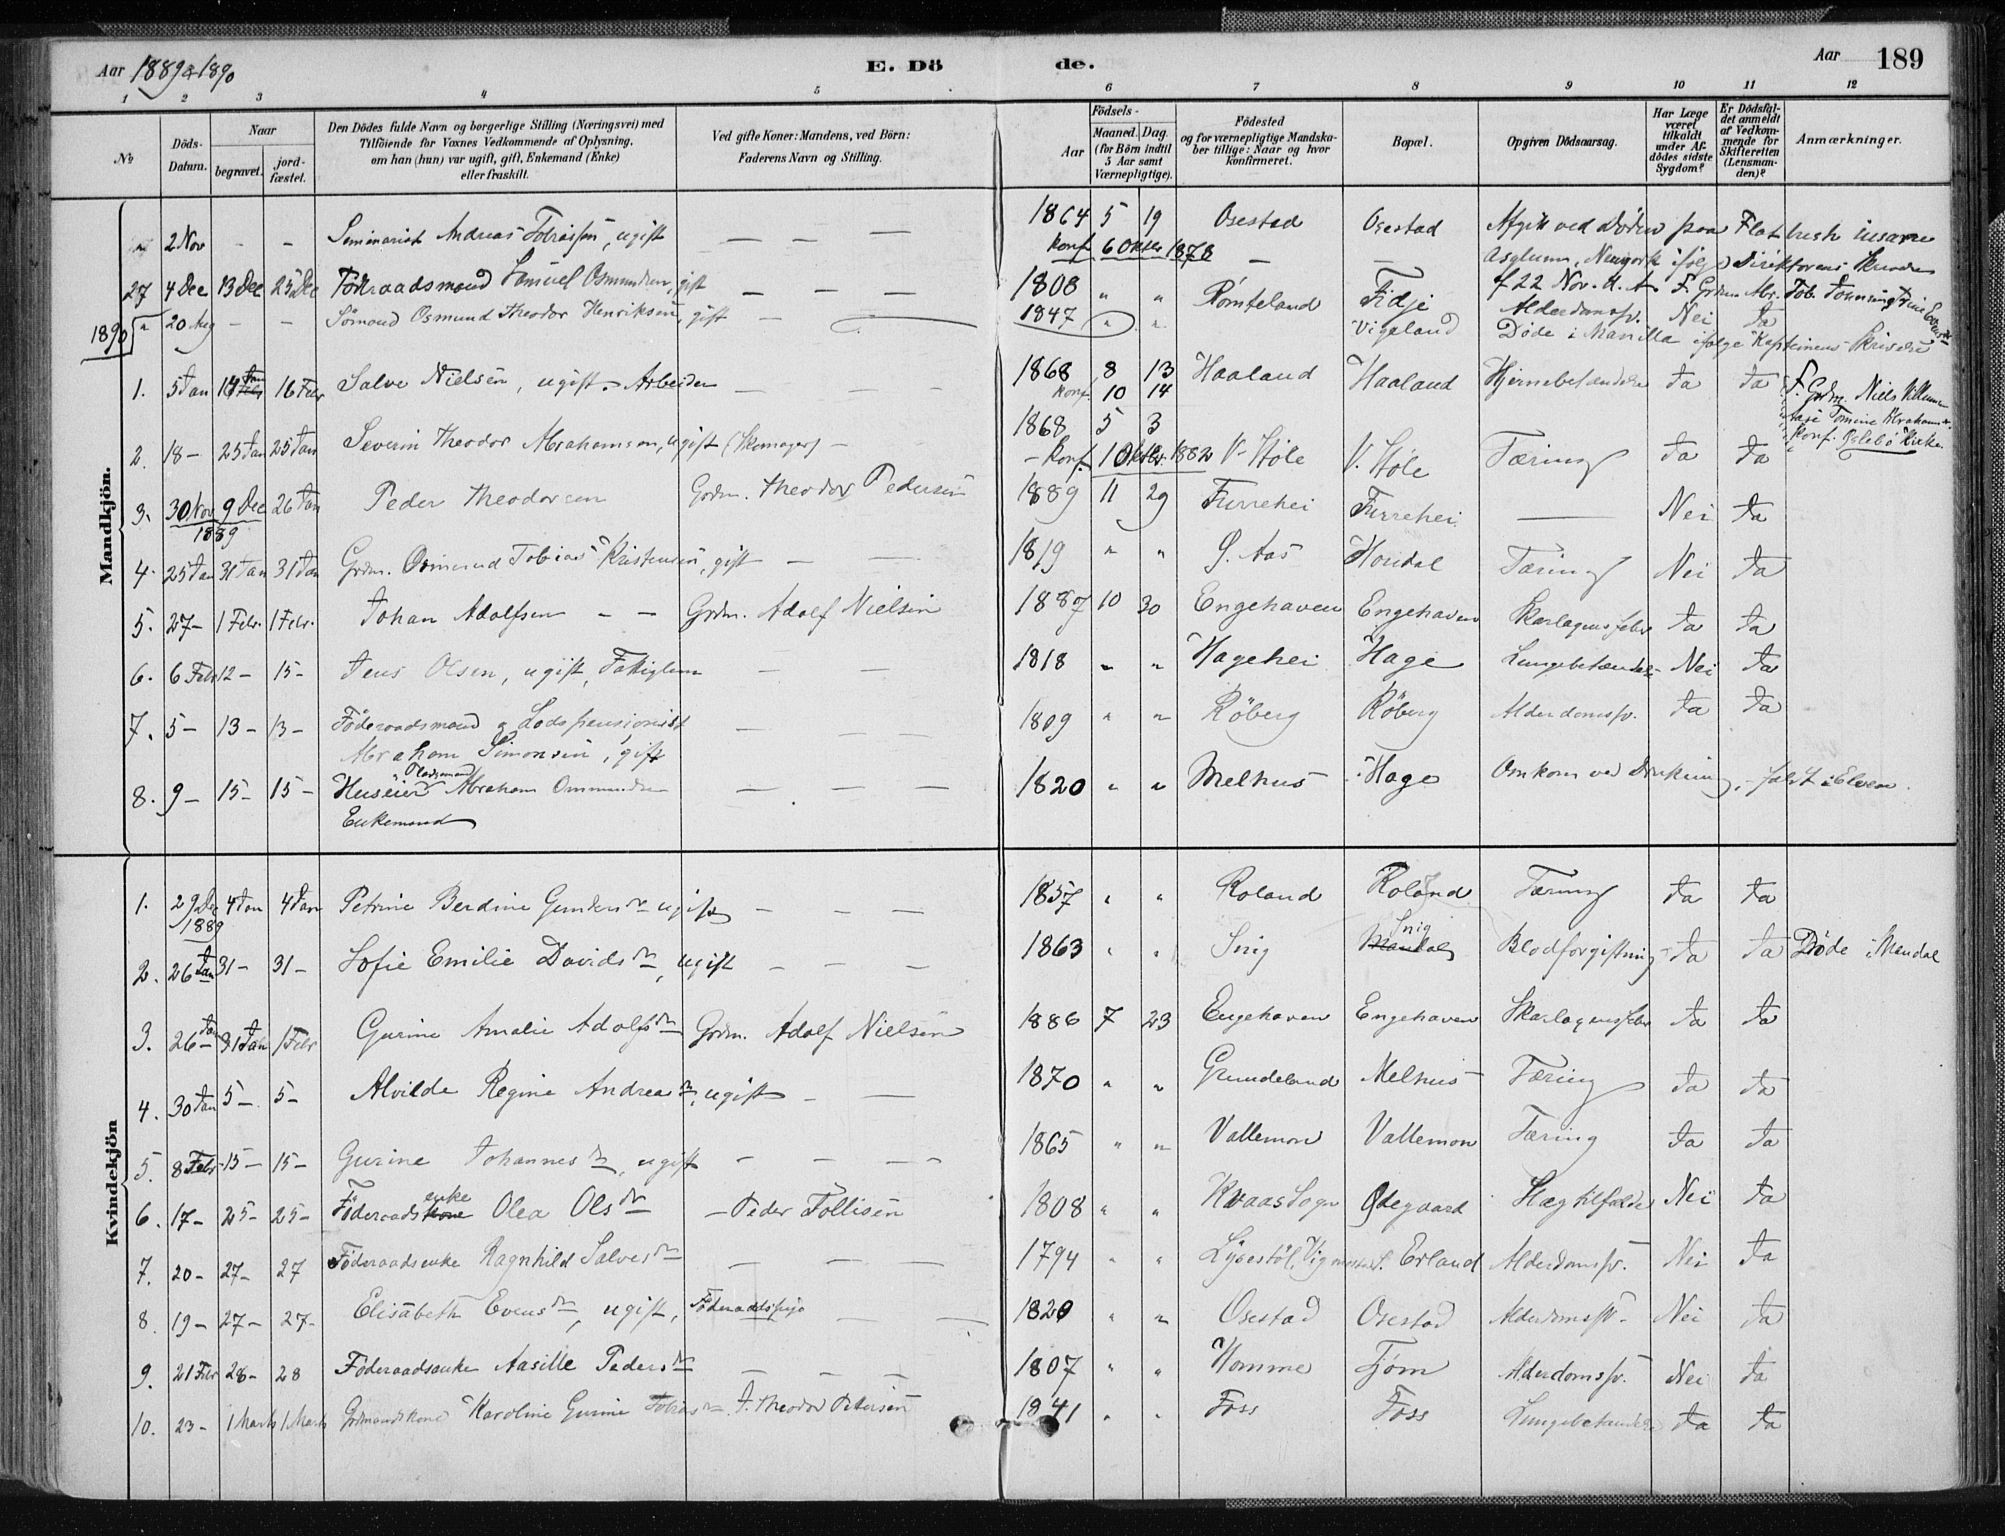 Aar 1889 & 1890 E. Dö de. Aar 189
1 2 3 4 5 6 7 8 9 10 11 12
No Döds-Datum. Naar begravet. jord-fæstet. Den Dödes fulde Navn og borgerlige Stilling (Næringsvei) med Tilföiende for Voxnes Vedkommende af Oplysning, om han (hun) var ugift, gift, Enkemand (Enke) eller fraskilt. Ved gifte Koner: Mandens, ved Börn: Faderens Navn og Stilling. Födsels- Aar Maaned. Dag. (for Börn indtil 5 Aar samt Værnepligtige). Födested og for værnepligtige Mandskaber tillige: Naar og hvor konfirmeret. Bopæl. Opgiven Dödsaarsag. Har Læge været tilkaldt under Afdödes sidste Sygdom? Er Dödsfaldet anmeldt af Vedkommende for Skifteretten (Lensmanden)? Anmærkninger.
Mandkjön.
" 2 Nov - - Seminarist Andreas Tobiassen, ugift — — — 1864 5 19 Osestad Osestad Afgik ved Döden paa Flatbush insane
Konf. 6 Oktbr 1878 — — Asylum, Newyork ifølge Direktørens Skrivelse
27 4 Dec 13 Dec 25 Dec Föderaadsmand Samuel Osmundsen, gift — — — 1808 " " Rømteland Fidje Alderdomssv. Nei Ja
af 22 Nov. d. A.
1890 " 20 Aug - - Sömand Osmund Theodor Henriksen, gift — 1847 " " Vigeland Döde i Manilla ifølge Kapteinens Skrivelse
1. 5 Jan 14 Jan 16 Febr Salve Nielsen, ugift. Arbeider — — 1868 8 13 Haaland Haaland Hjernebetændelse Ja Ja F. Grdm. Niels
Konf. 10 14
Konf. Oslebö Kirke
2. 18 – 25 Jan 25 Jan Severin Theodor Abrahamsen, ugift (Skomager) – 1868 5 3
– Konf. 1 Oktbr. 1882 V. Støle V. Støle Tæring Ja Ja
3. 30 Nov 9 Dec 1889 26 Jan Peder Theodorsen Grdm. Theodor Pedersen 1889 11 29 Furrehei Furrehei — Nei Ja
4. 25 Jan 31 Jan 31 Jan Grdm. Osmund Tobias Kristensen, gift — — 1819 " " S. Aas Hondal Tæring Nei Ja
5. 27 – 1 Febr. 1 Febr. Johan Adolfsen – – Grdm. Adolf Nielsen 1887 10 30 Engehaven Engehaven Skarlagensfeber Ja Ja
6. 6 Febr 12 – 15 – Jens Olsen, ugift, Fattiglem — — 1818 " " Hagehei Hage Lungebetændelse Nei Ja
7. 5 – 13 – 13 – Föderaadsmand & Lodspensionist — — 1809 " " Röberg Röberg Alderdomssv. Ja Ja
Abraham Simonsen, gift
8. 9 – 15 – 15 – Huseier & Pladsemand Abraham Ommundsen — — — 1820 " " Melhus Hage Omkom ved Drukning, faldt i Elven.
Enkemand
Kvindekjön
1. 29 Dec 1889 4 Jan 4 Jan Petrine Berdine Gundersdr ugift — — — 1857 " " Roland Roland Tæring Ja Ja
2. 26 Jan 31 – 31 – Sofie Emilie Davidsdr, ugift — — — 1863 " " Snig Mandal Snig Blodforgiftning Ja Ja Döde i Mandal
3. 26 – Jan 31 Jan 1 Febr Gurine Amalie Adolfsdr Grdm. Adolf Nielsen 1886 7 23 Engehaven Engehaven Skarlagensfeber Ja Ja
4. 30 Jan 5 – 5 – Alvilde Regine Andreasdr, ugift – — 1870 " " Grundeland Melhus Tæring Ja Ja
5. 8 Febr 15 – 15 – Gurine Johannesdr, ugift – – — 1865 " " Vallemon Vallemon Tæring Ja Ja
6. 17 – 25 – 25 – Föderaadskone enke Olea Olsdr – Peder Tollisen 1808 " " Kvaas Sogn Ødegaard Slagtilfælde Nei Ja
7. 20 – 27 – 27 Föderaadsenke Ragnhild Salvesdr — — — 1794 " " Lysestöl, Vigmostad. Erland Alderdomssv. Nei Ja
8. 19 – 27 – 27 – Elisabeth Evensdr, ugift, Föderaadspige — — 1820 " " Osestad Osestad Alderdomssv. Nei Ja
9. 21 Febr 28 – 28 Föderaadsenke Aasille Pedersdr — — — 1807 " " Homme Tjøm Alderdomssv. Nei Ja
10. 23 – 1 Marts 1 Marts Grdmandskone Karoline Gurine Tobiasdr F. Theodor Petersen 1841 " " Foss Foss Lungebetændelse Ja Ja